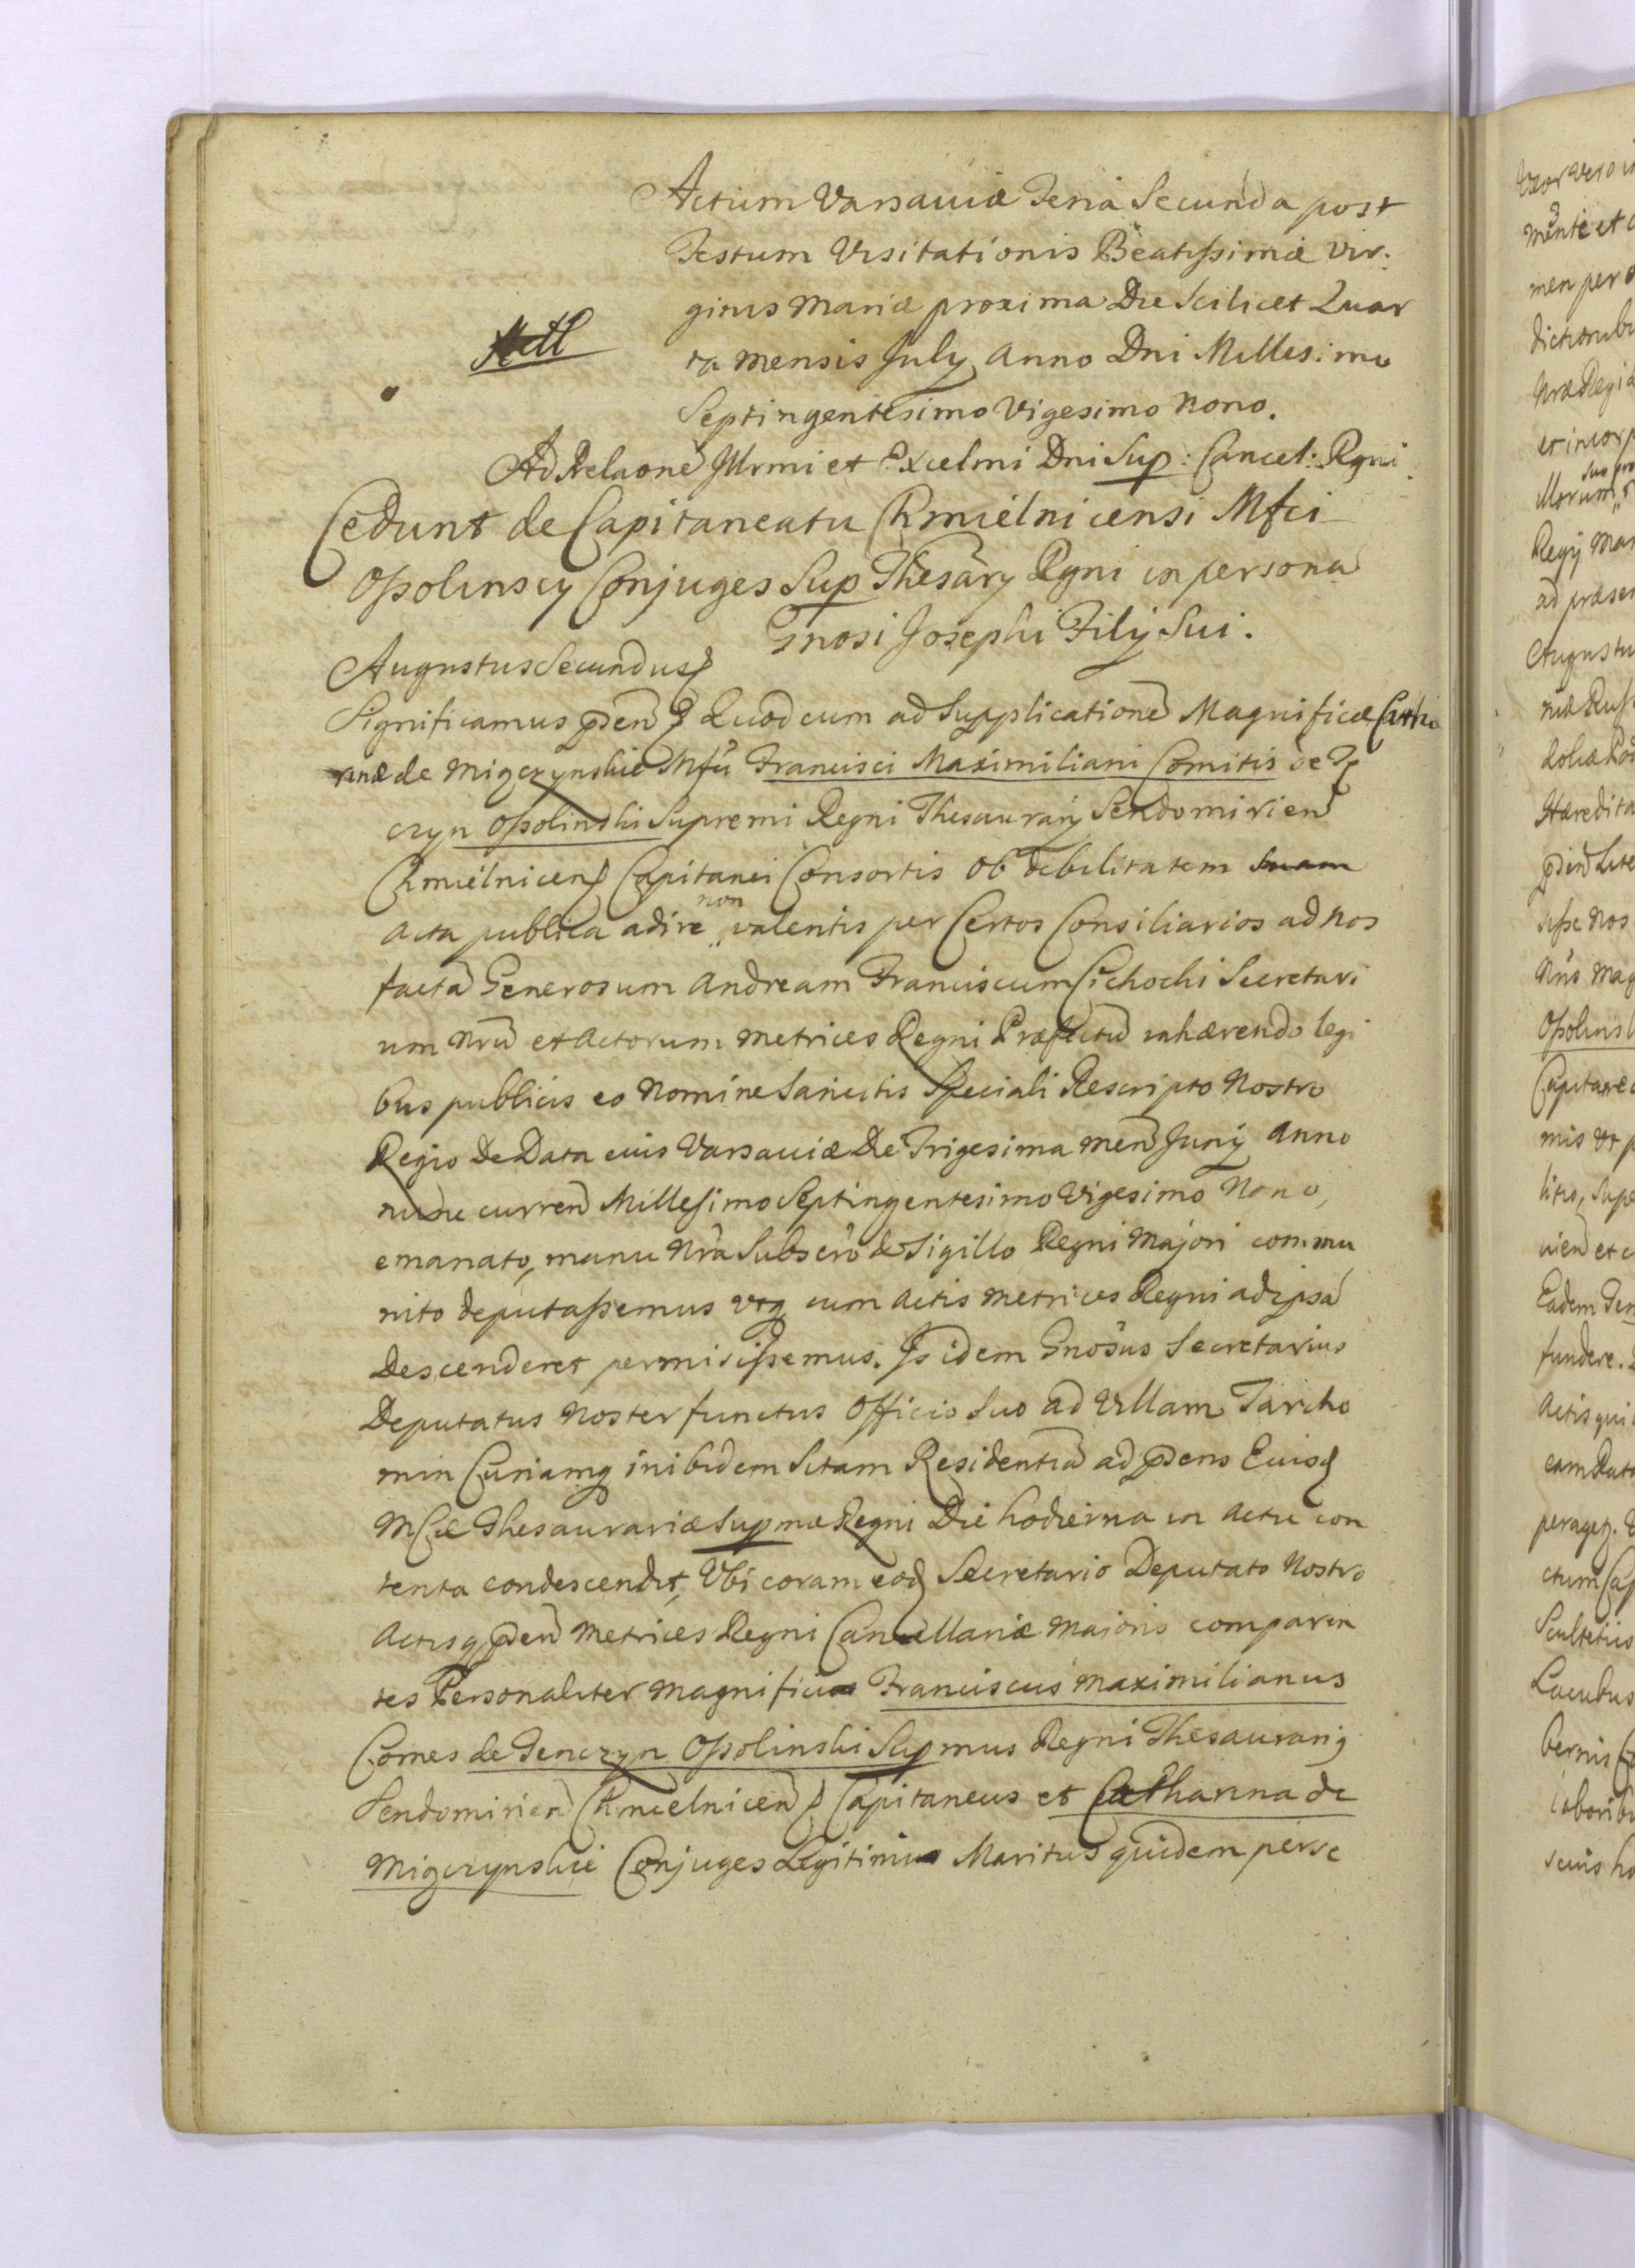 Actum Varsaviæ Feria Secunda post
Festum Visitationis Beatissimæ Vir-
ginis Mariæ proxima Die Scilicet Quar
ta mensis July Anno Dni Millesimo
Septingentesimo Vigesimo Nono.
Ad Relaone Illrmi et Excelmi Dni Sup: Cancel: Rgni
Cedunt de Capitaneatu Chmielnicensi Mfci
Ossolinscy Conjuges Sup Thesary Rgni in persona
Gnosi Josephi Filij Sui.
Augustus Secundus
Significamus Quod cum ad Supplicatione Magnificæ Catha
rinæ de Miączynskie Mfci Francisci Maximiliani Comitis de Tę
czyn Ossolinski Supremi Regni Thesaurarij Sendomirien
Chmielnicen Capitanei Consortis ob debilitatem suam
Acta publica adire non valentis per Certos Consiliarios ad nos
facta Generosum Andream Franciscum Cichocki Secretari
um Nrm et Actorum Metrices Regni Præfectu inhærendo legi
bus publicis eo Nomine Sancitis Speciali Rescripto Nostro
Regio De Data eius Varsaviæ Die Trigesima men Junij Anno
nunc curren Millesimo Septingentesimo Vigesimo Nono,
emanato, manu Nra Subscro & Sigillo Regni Majori commu
nito deputassemus utq cum Actis Metrices Regni ad ipsa
Descenderet permisissemus. Is idem Gnosus Secretarius
Deputatus Noster functus Officio Suo ad Villam Tarcho
min Curiamq inibidem Sitam Residentia ad pdens Eiusd
Mfcæ Thesaurariæ Supmæ Regni Die hodierna in Actu con
tenta condescendit, Ubi coram eod Secretario Deputato Nostro
Actisq pden Metrices Regni Cancellariæ Majoris comparen
tes Personaliter Magnificus Franciscus Maximilianus
Comes de Tenczyn Ossolinski Supmus Regni Thesaurarij
Sendomirien Chmielnicen Capitaneus et Catharina de
Miączynskie Conjuges Legitimi Maritus quidem per se